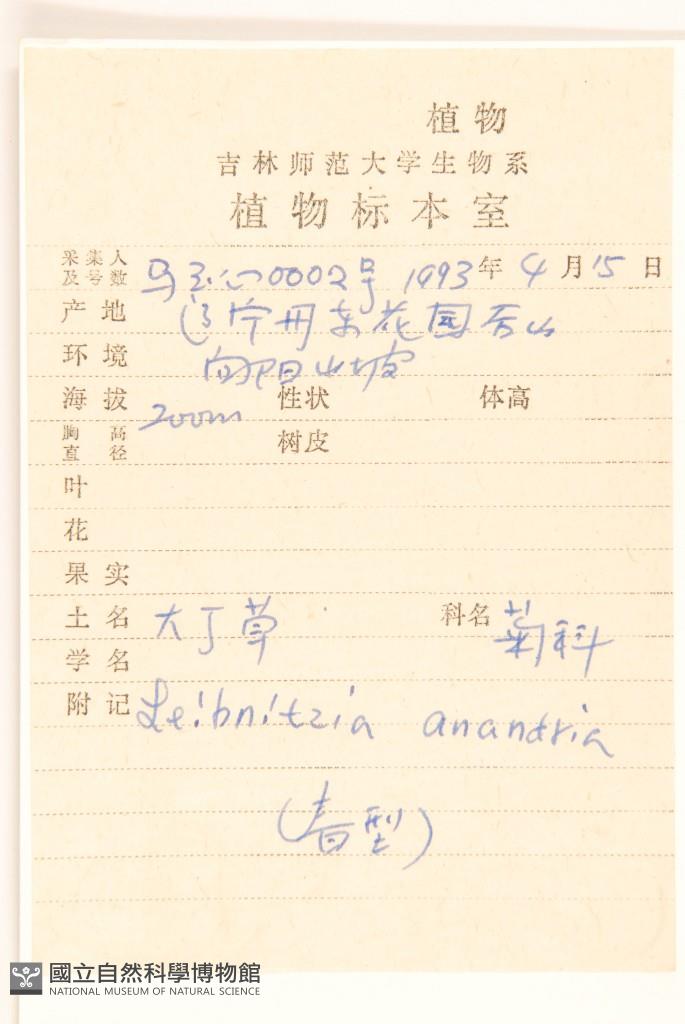 植物
吉林师范大学生物系
植物标本室
采集人及号数 马 心0002号 1993年4月15日
产地 辽宁丹东花园后山
环境 向阳山坡
海拔 200m 性状 体高
胸高直径 树皮
叶
花
果实
土名 大丁草 科名 菊科
学名
附记 Leibnitzia anandria
(春型)
國立自然科學博物館
NATIONAL MUSEUM OF NATURAL SCIENCE